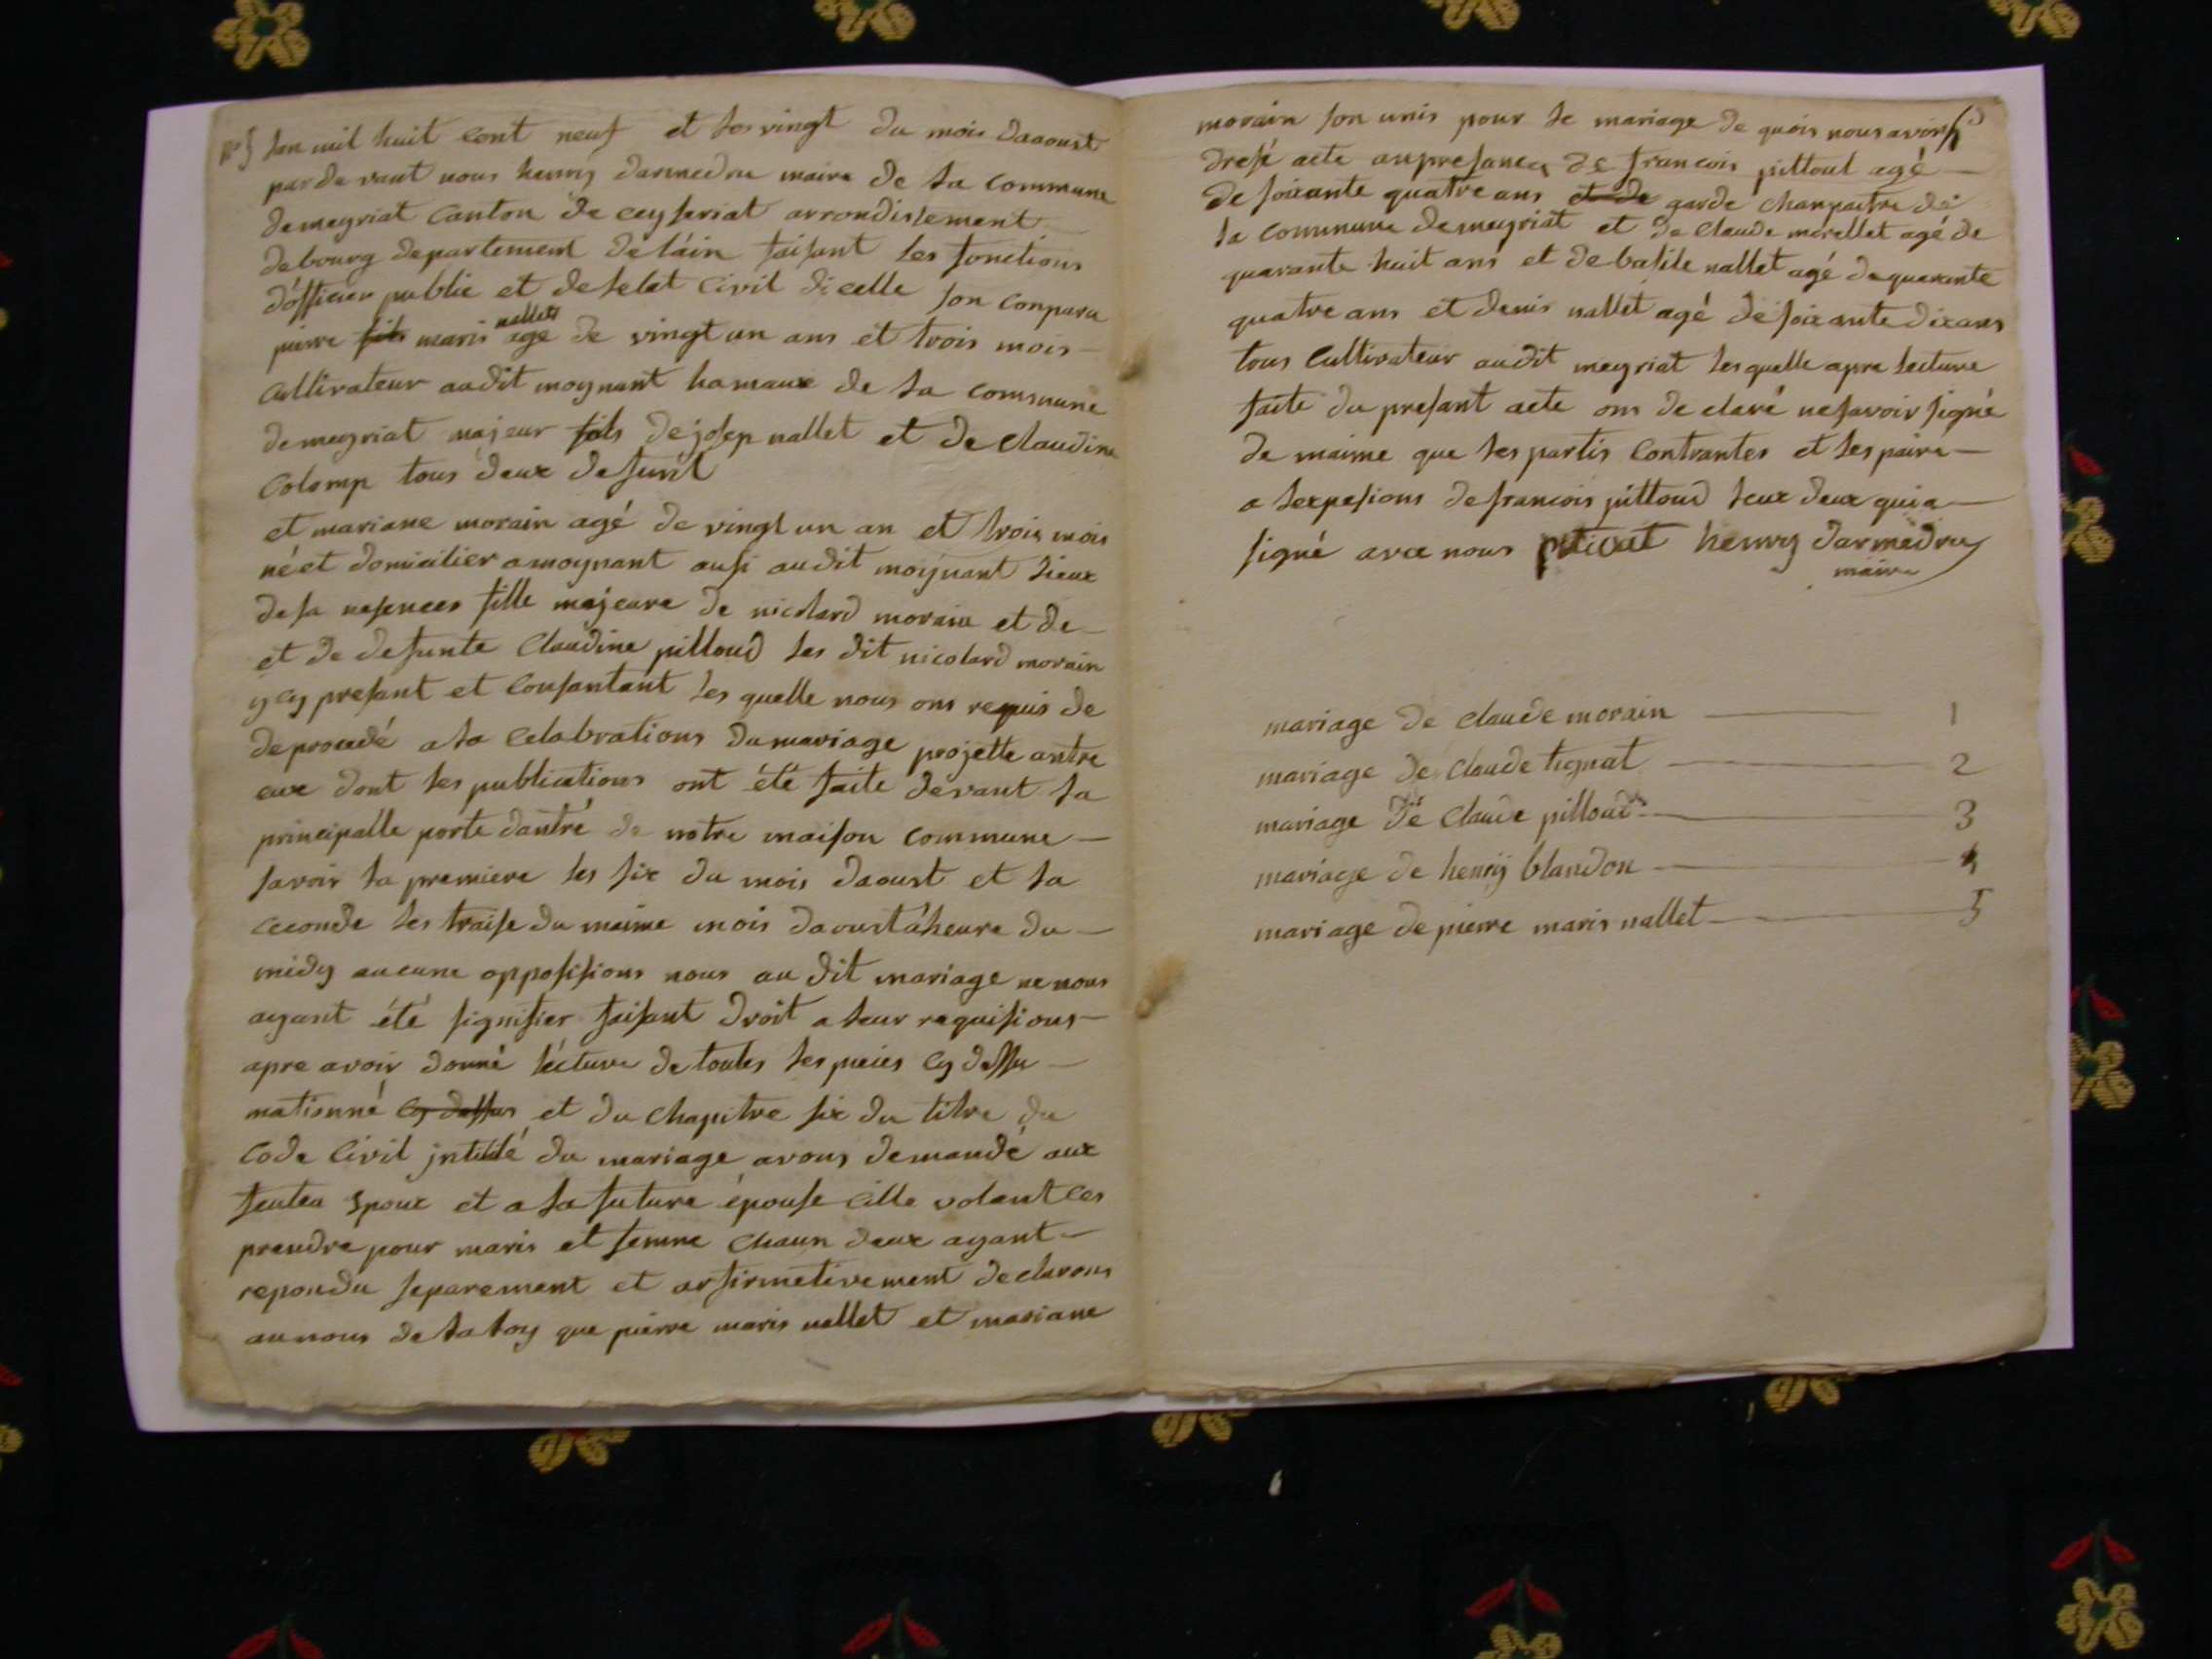 n° 5 Lan mil huit cent neuf et les vingt du mois daaoust
par de vant nous henry darmedru maire de la commune
de meyriat canton de ceyseriat arrondissement
de bourg departement de láin faisant les fonctions
dófficier public et de letat civil dicelle son conparu
pierre fils maris nallet agé de vingt un ans et trois mois
cultivateur audit moynant hamaux de la commune
de meyriat majeur fils de josep nallet et de claudine
colomp tous deux defunt
et mariane morain agé de vingt un an et trois mois
né et domicilier a moynant ausi audit moynant lieux
de sa nesences fille majeure de nicolard morain et de
et de defunte claudine pilloud les dit nicolard morain
y cy presant et consantant les quelle nous ons requis de
de procedé a la celabrations du mariage projette antre
eux dont les publications ont été faite devant la
principalle porte dantré de notre maison commune
savoir la premiere les six du mois daoust et la
ceconde les traise du maime mois daoust áheure du
midy aucune opposisions nous au dit mariage ne nous
ayant été signifier faisant droit a leur requisions
apre avoir donné lécture de toutes les pieces cy dessu
mationné cy dessus et du chapitre six du titre du
code civil jntitulé du mariage avons demandé aux
feuteu epoux et a la future épouse cille volent ces
prendre pour maris et femme chaun deux ayant
repondu separement et arfirmetivement declarons
au nous de la loy que pierre maris nallet et mariane
morain son unis pour le mariage de quois nous avons
dresé acte anpresances de francois pilloud agé
de soixante quatre ans et de garde chanpaitre de
la commune de meyriat et de claude morellet agé de
quarante huit ans et de basile nallet agé de quarante
quatre ans et denis nallet agé de soixante dix ans
tous cultivateur audit meyriat les quelle apre lecture
faite du presant acte ons de claré ne savoir signé
de maime que les partis contrantes et les paire
a lexpesions de francois pilloud leux deux qui a
signé avec nous peticat henry darmedru
maire
mariage de claude morain 1
mariage de claude tignat 2
mariage de claude pilloud 3
mariage de henry blandon 4
mariage de pierre maris nallet 5